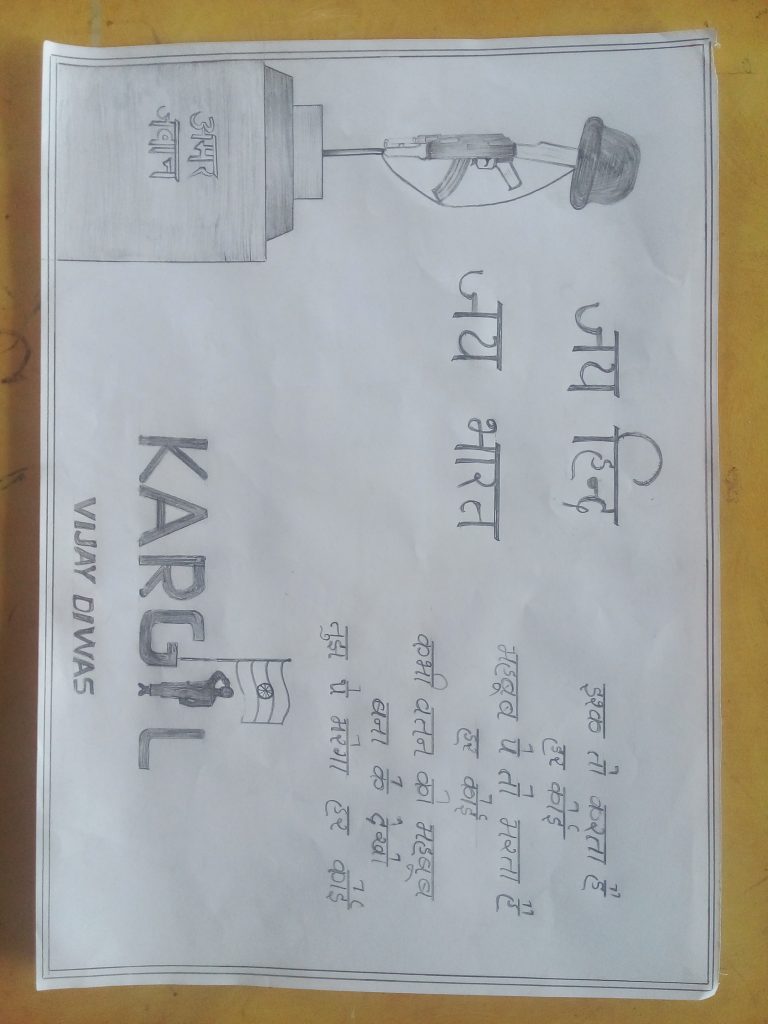 जय हिन्द
जय भारत
इश्क तो करता हैं
हर कोई
महबूब पे तो मरता हैं
हर कोई
कभी वतन को महबूब
बना के देखो
तुझ पे मरेगा हर कोई
अमर
जवान
KARGIL
VIJAY DIWAS